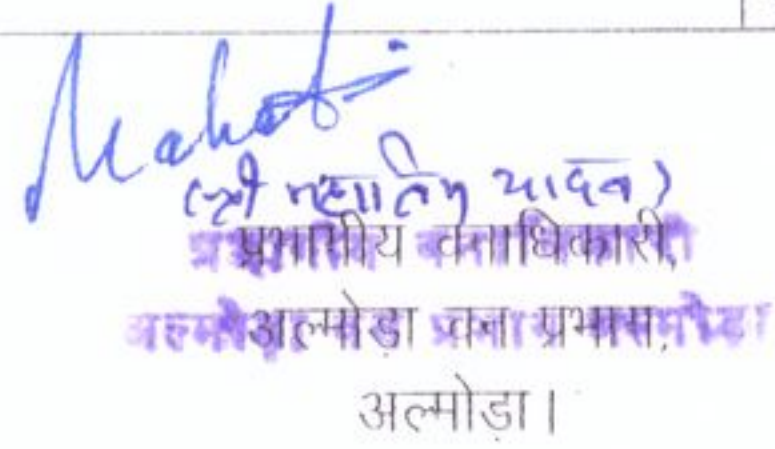 (श्री महातिम यादव)
प्रभागीय वनाधिकारी,
अल्मोड़ा वन प्रभाग,
अल्मोड़ा।